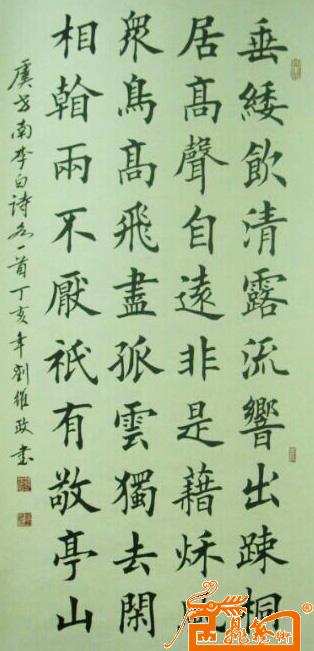 垂緌飲清露流響出疎桐
居髙聲自遠非是藉秋風
衆鳥髙飛盡孤雲獨去閑
相翰兩不厭祇有敬亭山
虞世南李白詩各一首丁亥年劉維政書